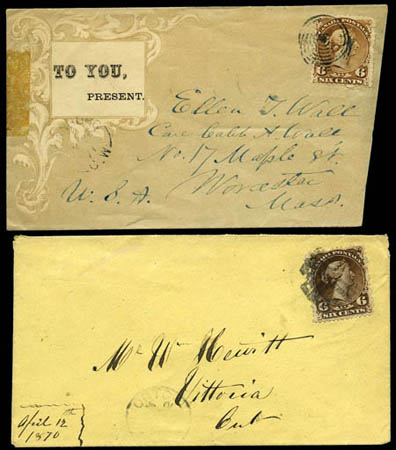 TO YOU,
PRESENT.
CANADA POSTAGE
6 6
SIX CENTS
Ellen T. Wall
Care Caleb A. Wall
No. 17 Maple St.
Worcester
U. S. A. Mass.
CANADA POSTAGE
6 6
SIX CENTS
Mr Wm Hewitt
Vittoria
Ont
April 12th
1870